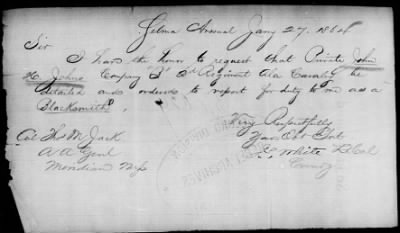 Selma Arsenal Jany 27. 1864
Sir
I have the honor to request that Private John
H. Johns Company "F" 3d Regiment Ala Cavalry be
detailed and ordered to report for duty to me as a
Blacksmith
Very Respectfully
Your Obt Svt
White Lt Col
Comdg
Col Thos M Jack
A A Genl
Meridian Miss